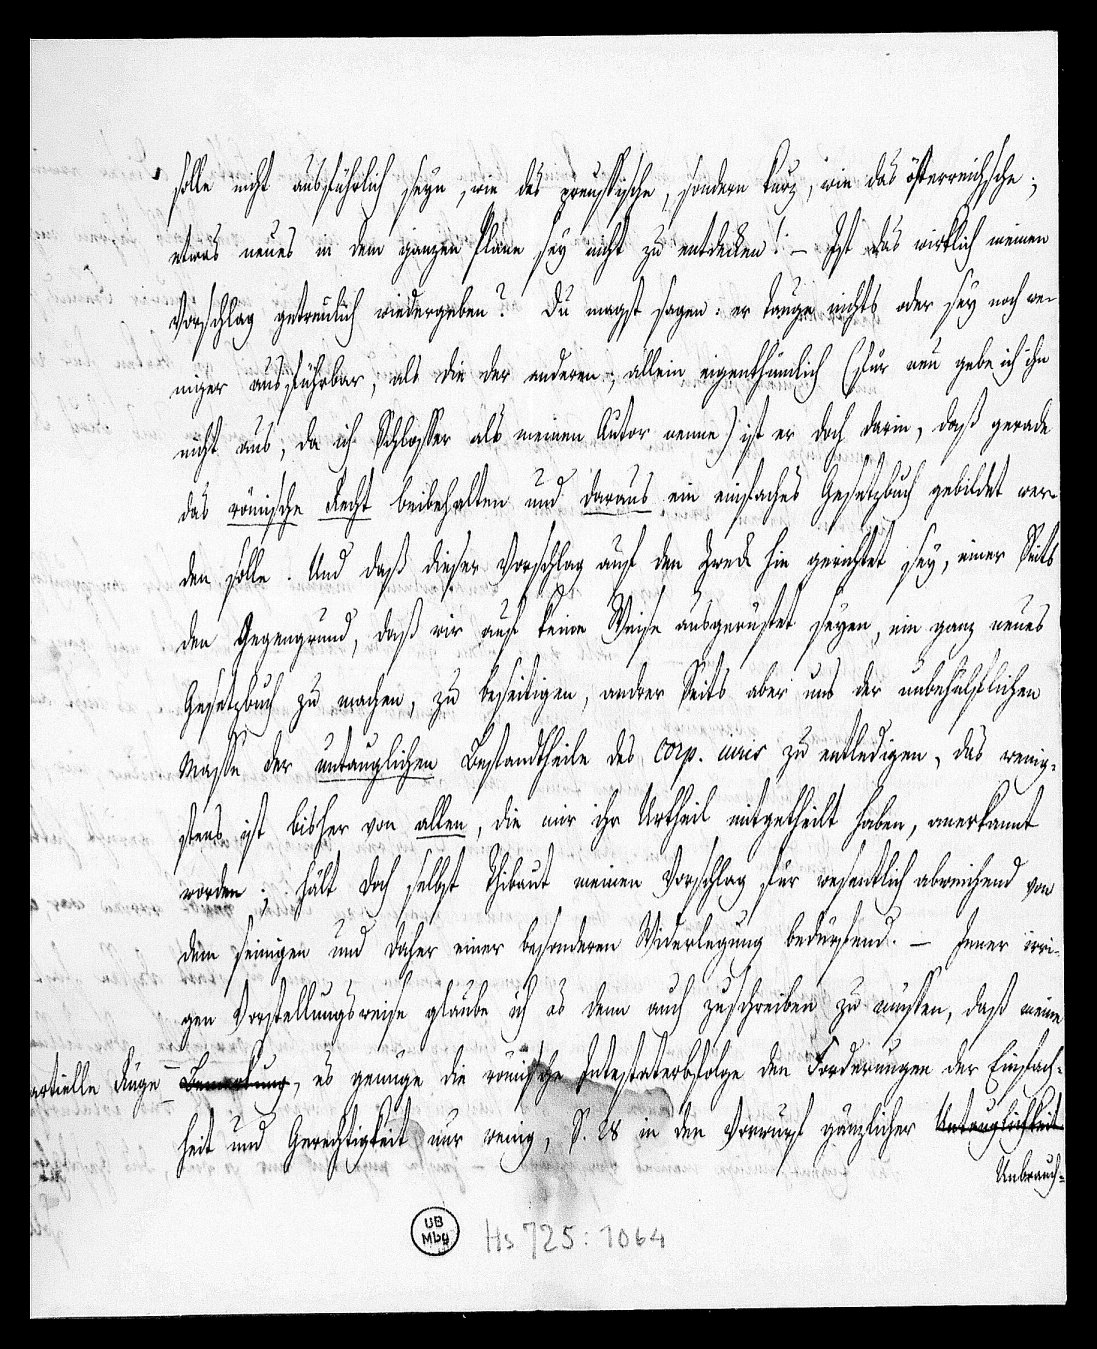 solle nicht ausführlich seyn, wie das preussische, sondern kurz, wie das österreichsche;
etwas neues in dem ganzen Plane sey nicht zu entdecken! – Ist das wirklich meinen
Vorschlag getreulich wiedergeben? Du magst sagen: er tauge nichts oder sey noch we-
niger ausführbar, als die der anderen, allein eigenthümlich (für neu gebe ich ihn
nicht aus, da ich Schlosser als meinen Autor nenne) ist er doch darin, daß gerade
das römische Recht beibehalten und daraus ein einfaches Gesetzbuch gebildet wer-
den solle. Und daß dieser Vorschlag auf den Zweck hin gerichtet sey, einer Seits
den Gegengrund, daß wir auf keine Weise ausgerüstet seyen, ein ganz neues
Gesetzbuch zu machen, zu beseitigen, andrer Seits aber uns der unbehülflichen
Masse der untauglichen Bestandtheile des corp. iuris zu entledigen, das wenig-
stens ist bisher von allen, die mir ihr Urtheil mitgetheilt haben, anerkannt
worden; hält doch selbst Thibaut meinen Vorschlag für wesentlich abweichend von
dem seinigen und daher einer besonderen Widerlegung bedürfend. – Jener irri-
gen Vorstellungsweise glaube ich es denn auch zuschreiben zu müssen, daß meine
artielle Rüge Bemerkung, es genüge die römische Intestaterbfolge den Forderungen der Einfach-
heit und Gerechtigkeit nur wenig, S. 28 in den Vorwurf gänzlicher Untauglichkeit
Unbrauch-
UB
Mbg
Hs 725:1064